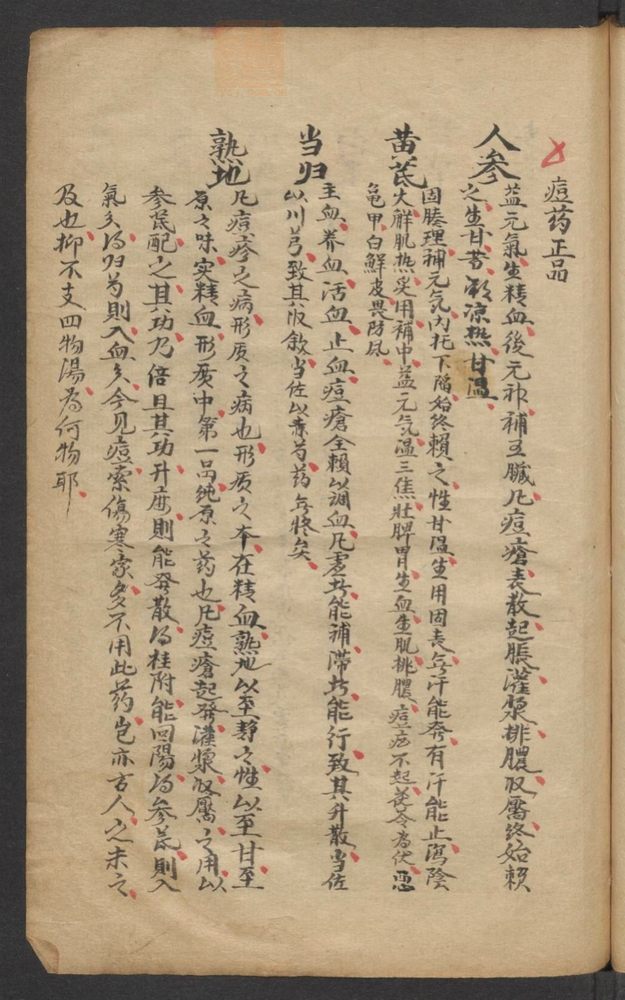 痘药正品
人参
益元氣生精血後元神補五臟凡痘瘡表散起脹灌漿排膿収靨終始賴
之生甘苦微涼熱甘温
黄芪
固腠理補元気内托下陷始终賴之性甘温生用固表無汗能發有汗能止泻陰
大解肌热炙用補中益元气温三焦壮脾胃生血生肌排膿痘疮不起茯苓為伏惡
龟甲白鮮皮畏防风
当归
主血养血活血止血痘瘡全賴以調血凡虚者能補滞者能行致其升散当佐
以川芎致其収斂当佐以赤芍药無出矣
熟地
凡痘疹之病形质之病也形质之本在精血熟地以至静之性以至甘至
厚之味实精血形质中第一品纯厚之药也凡痘瘡起發灌漿収靨之用以
参芪配之其功乃倍且其功升麻則能發散得桂附能回陽得参芪則入
氣分得归芍則入血分今见痘家傷寒家多不用此药岂亦古人之未之
及也抑不支四物湯為何物耶